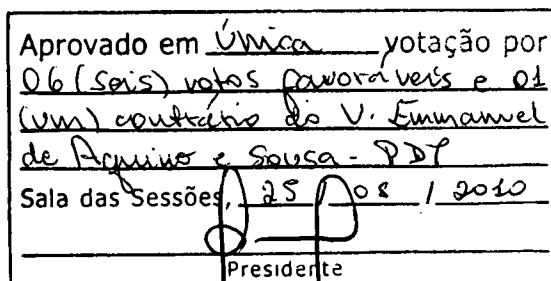 Aprovado em Única votação por
06 (seis) votos favoráveis e 01
(um) contrário do V. Emmanuel
de Aquino e Sousa - PDT
Sala das Sessões, 25 / 08 / 2010
Presidente